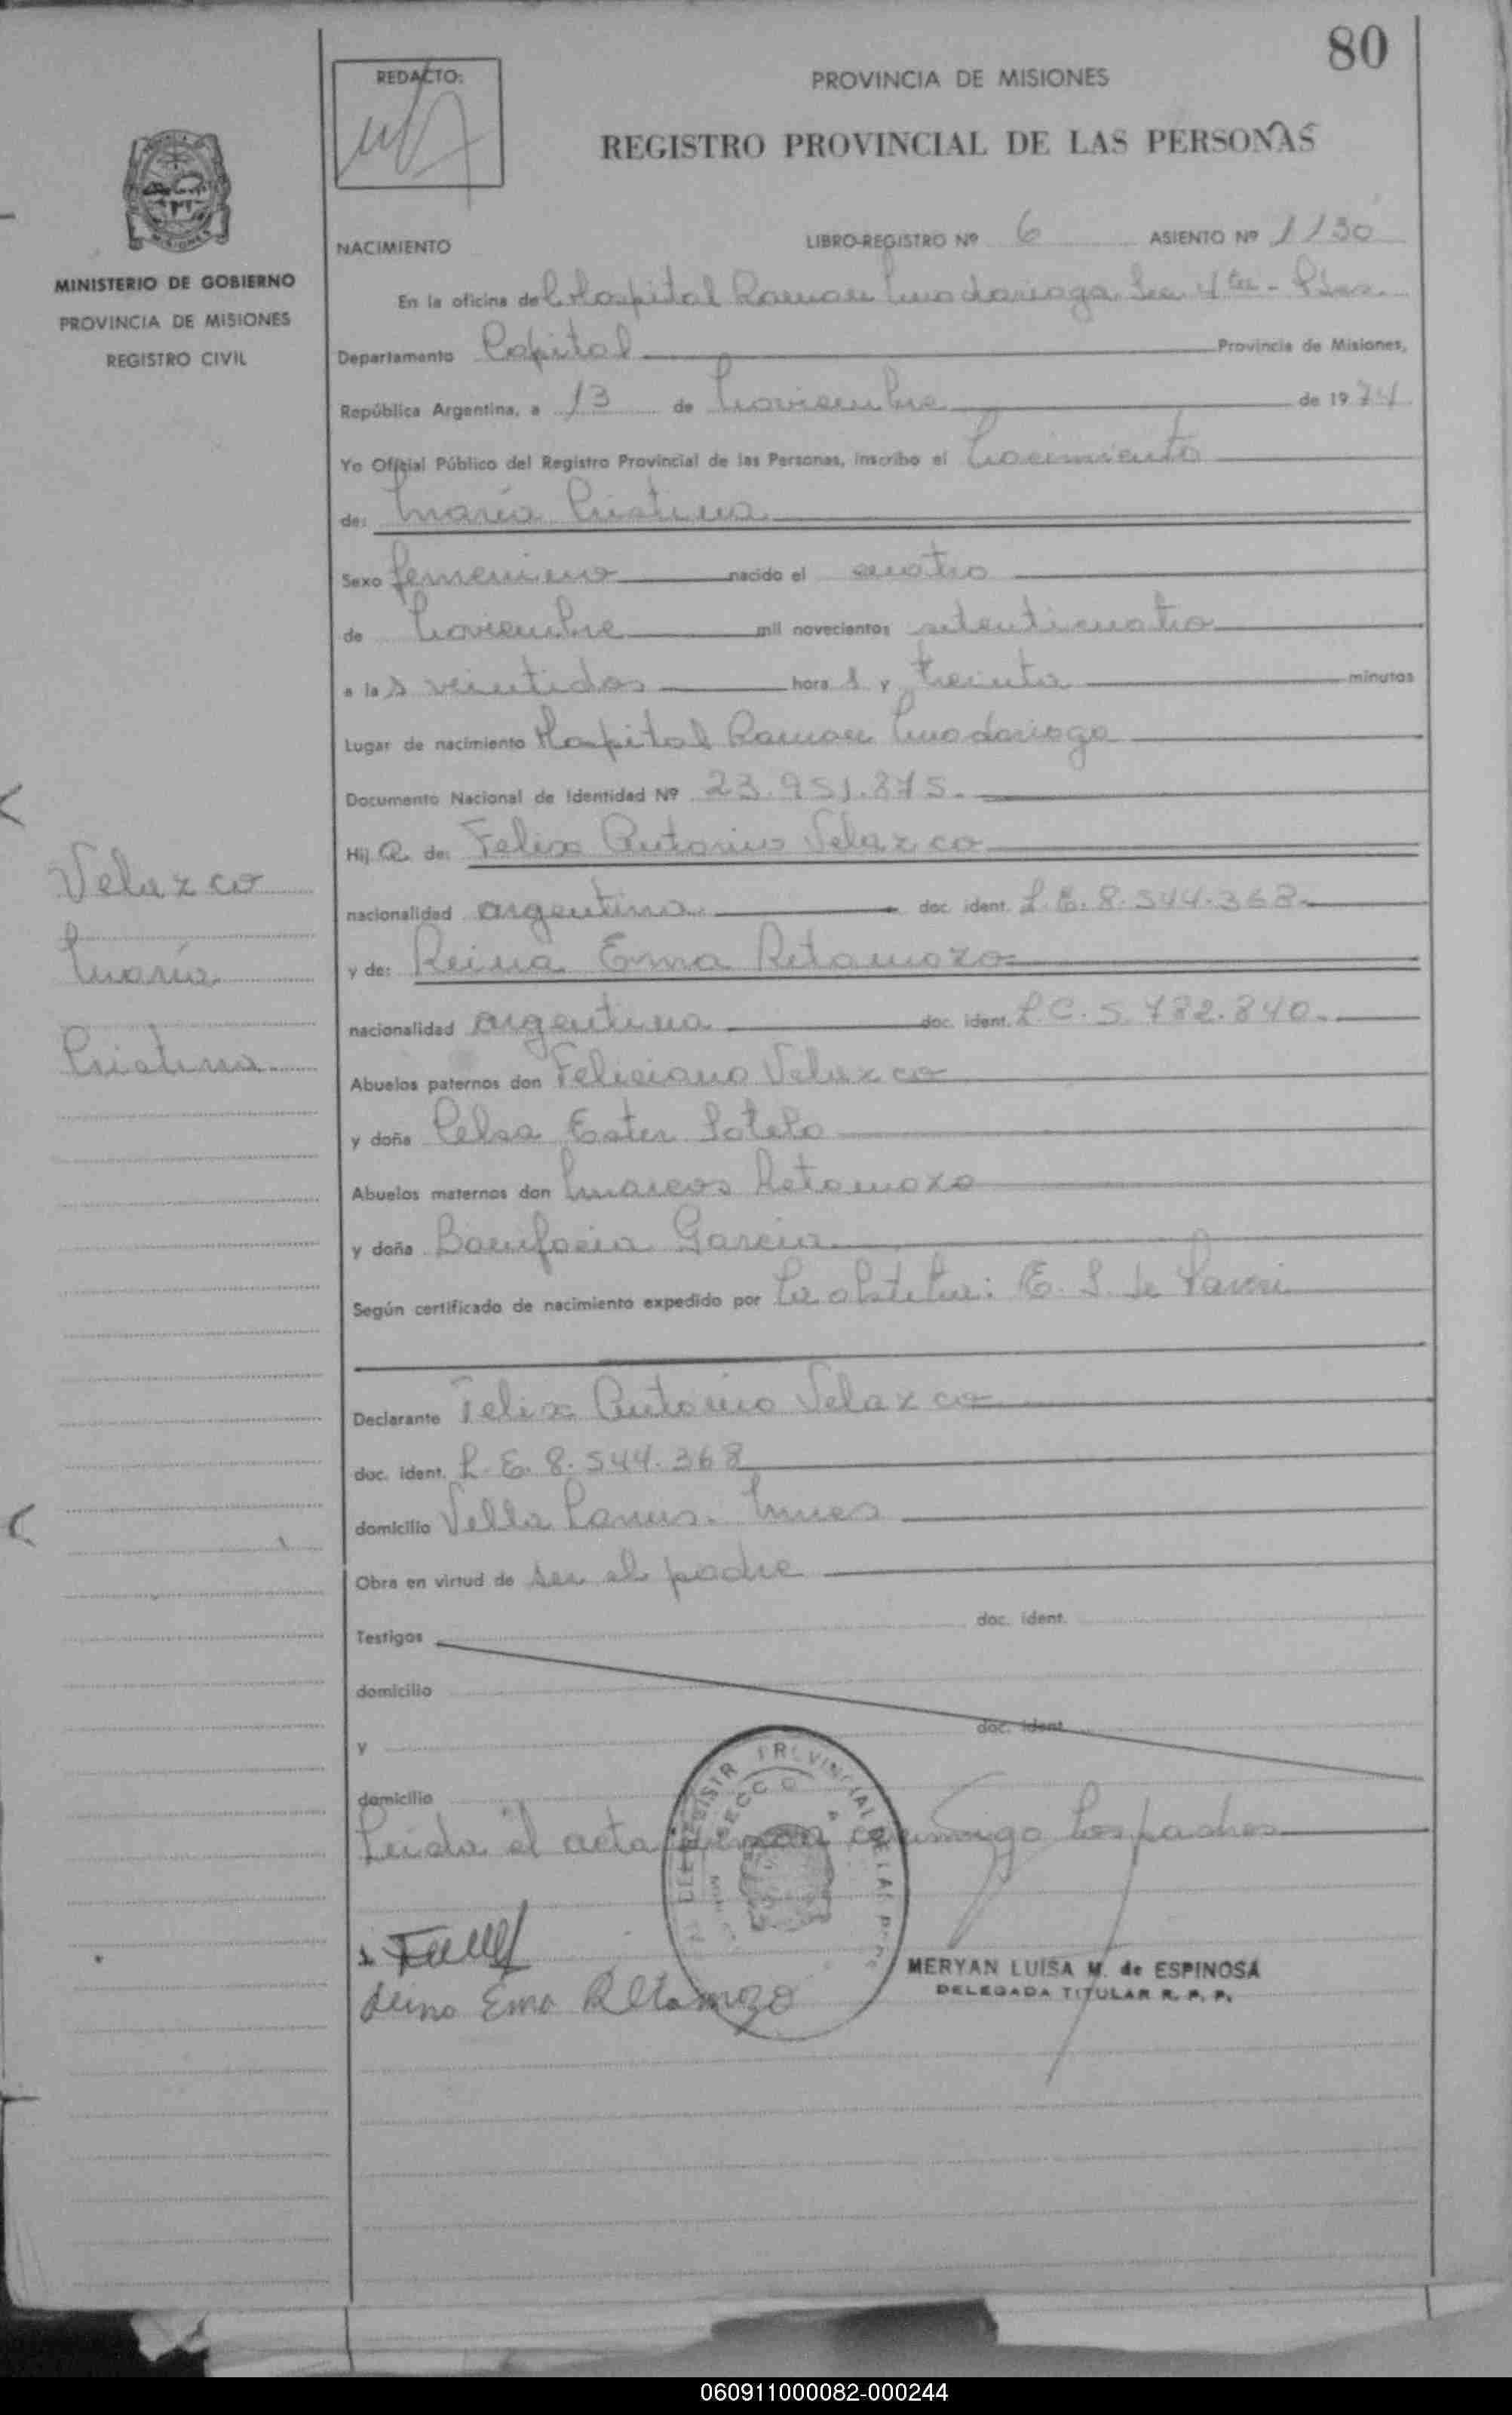 80
REDACTO:
PROVINCIA DE MISIONES
REGISTRO PROVINCIAL DE LAS PERSONAS
MISIONES
MINISTERIO DE GOBIERNO
PROVINCIA DE MISIONES
REGISTRO CIVIL
NACIMIENTO LIBRO-REGISTRO Nº 6 ASIENTO Nº 1130
En la oficina del Hospital Ramon Madariaga Sec 4ta - Pdas.
Departamento Capital Provincia de Misiones,
República Argentina, a 13 de Noviembre de 1974
Yo Oficial Público del Registro Provincial de las Personas, inscribo el Nacimiento
de: María Cristina
Sexo femenino nacido el cuatro
de Noviembre mil novecientos setenticuatro
a las veintidos horas y treinta minutos
Lugar de nacimiento Hospital Ramon Madariaga
Documento Nacional de Identidad Nº 23.951.875.
Hija de: Felix Antonio Velazco
nacionalidad argentina doc. ident. L.E. 8.544.368
y de: Reina Ema Retamozo
nacionalidad argentina doc. ident. L.C. 5.782.840.
Abuelos paternos don Feliciano Velazco
y doña Celsa Ester Sotelo
Abuelos maternos don Marcos Retamozo
y doña Bonifacia Garcia
Según certificado de nacimiento expedido por La obstetra: E. S. de
Velazco
María
Cristina
Declarante Felix Antonio Velazco
doc. ident. L.E. 8.544.368
domicilio Villa Lanus. Mnes
Obra en virtud de ser el padre
Testigos doc. ident.
domicilio
y doc. ident.
domicilio
Leida el acta firman conmigo los padres
Reina Ema Retamozo
MERYAN LUISA M. de ESPINOSA
DELEGADA TITULAR R. P. P.
060911000082-000244